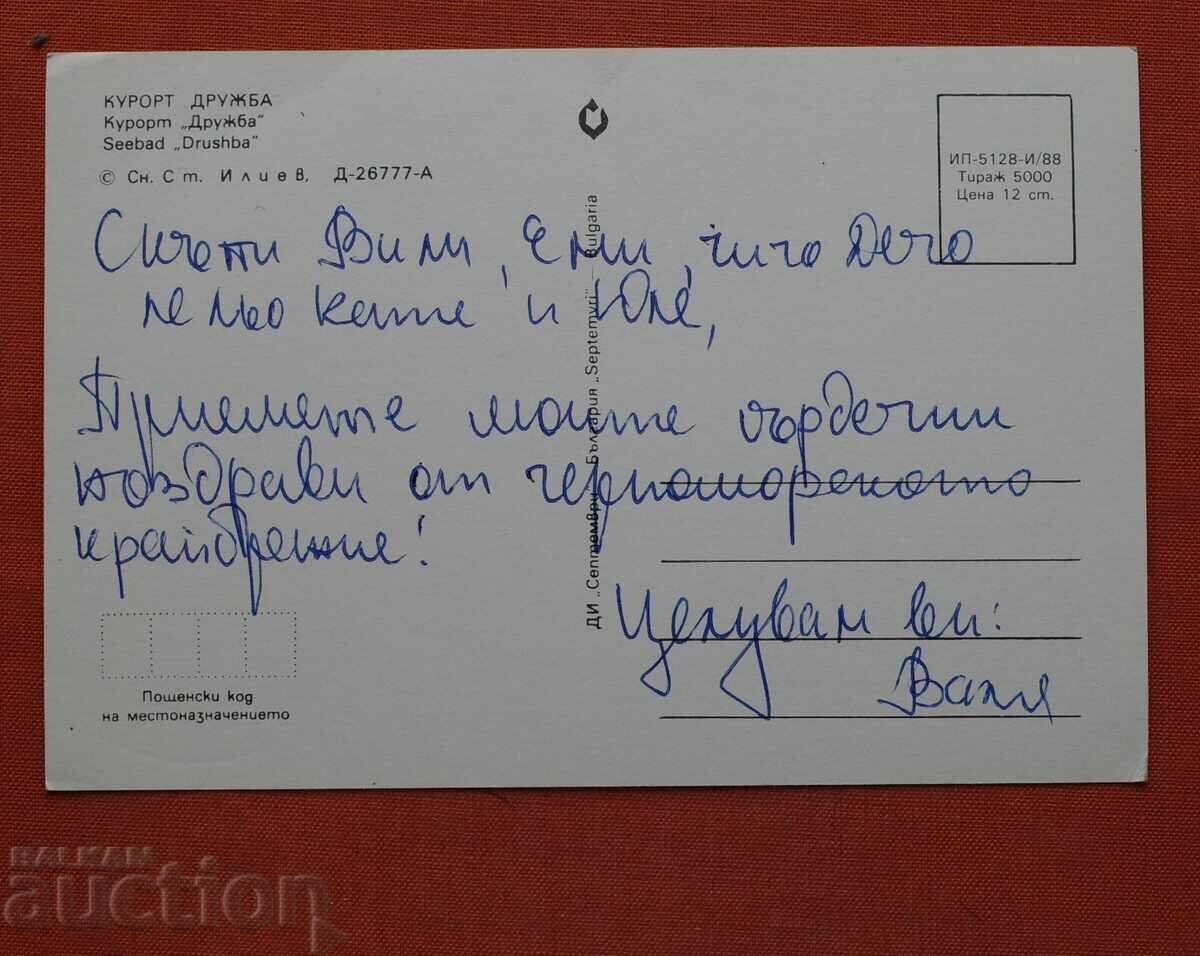 КУРОРТ ДРУЖБА
Курорт „Дружба“
Seebad „Drushba“
© Сн. Ст. Илиев, Д-26777-А
ИП-5128-И/88
Тираж 5000
Цена 12 ст.
ДИ „Септември“ — България „Septemvri“ — Bulgaria
Скъпи Вили, Еми, чичо Дечо
лельо Кате и Юле,
Приемете моите сърдечни
поздрави от черноморското
крайбрежие!
Целувам ви:
Ваня
Пощенски код
на местоназначението
BALKAN
auction